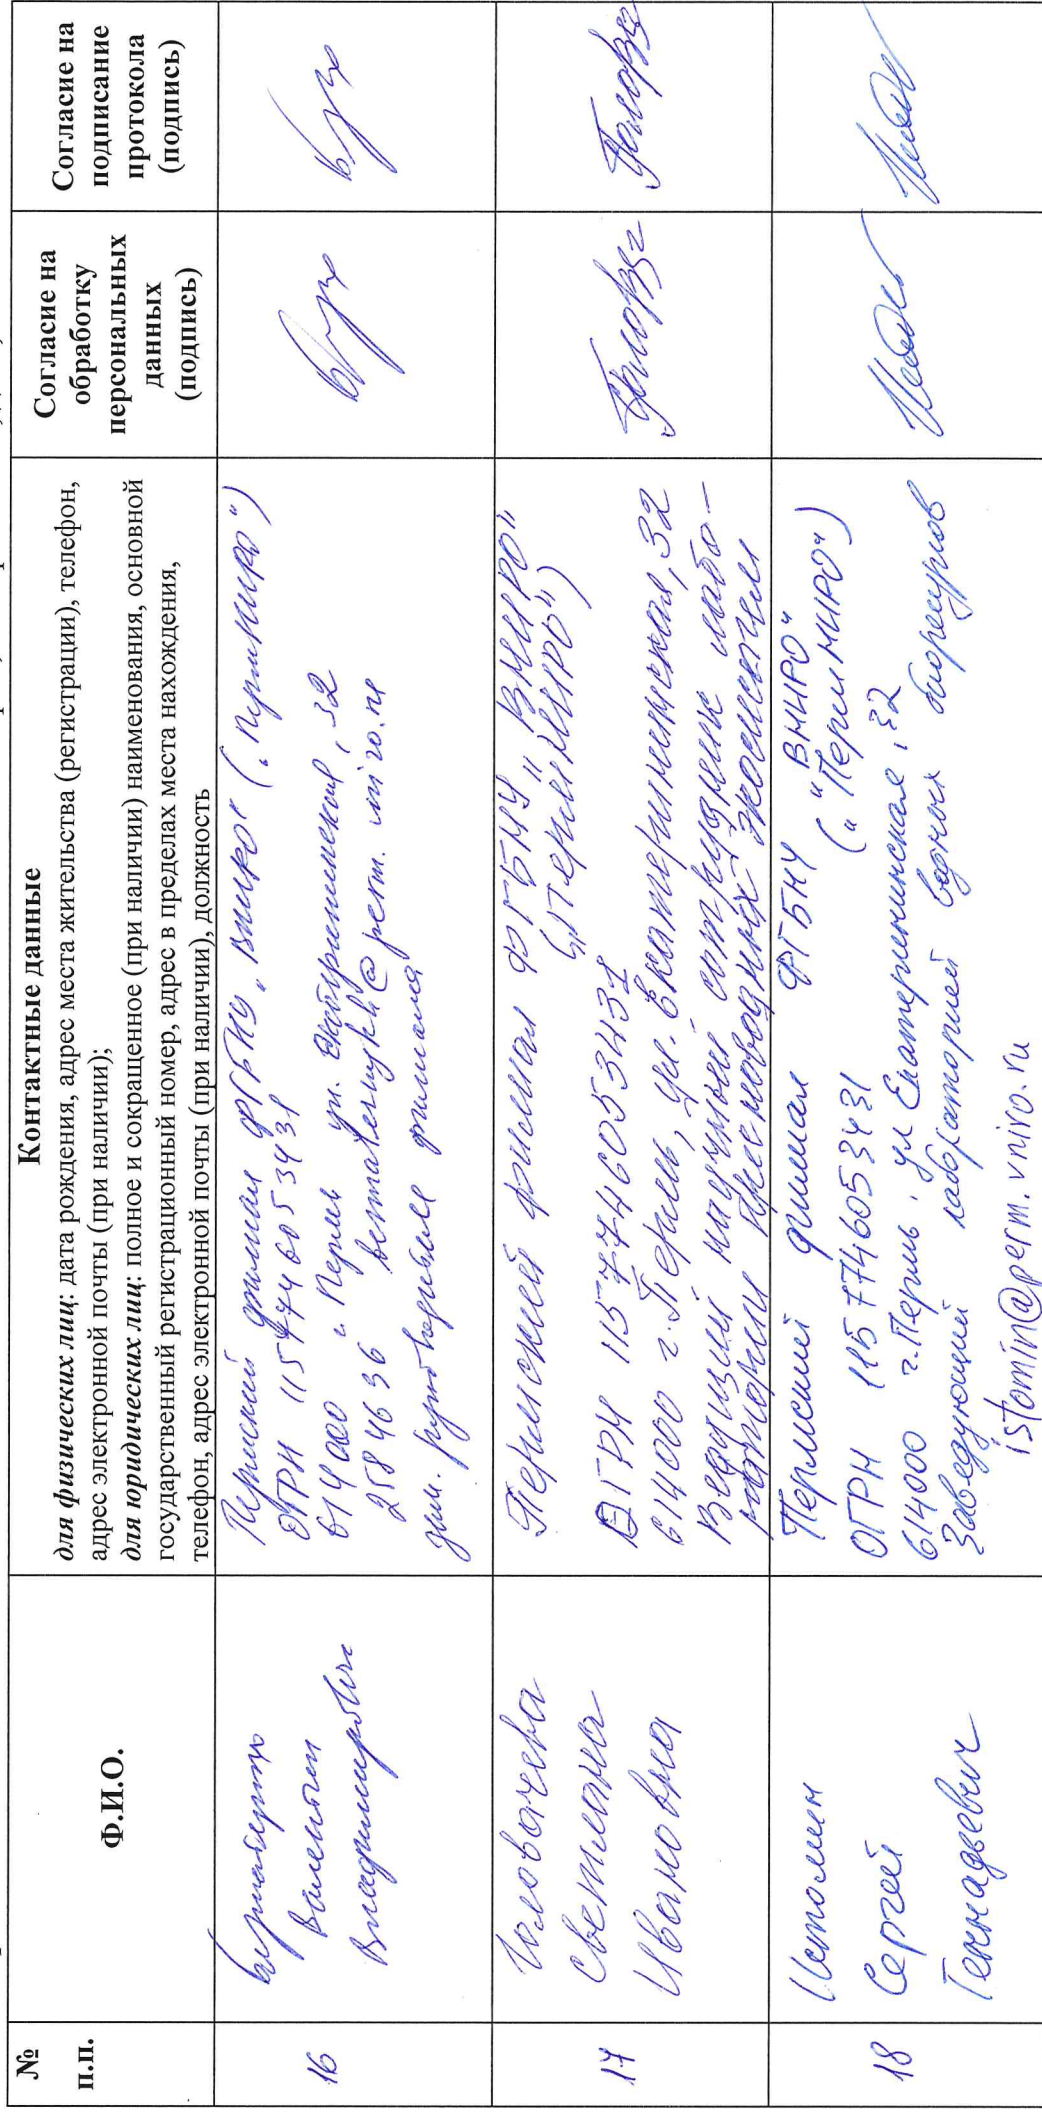 №
п.п.
Ф.И.О.
Контактные данные
для физических лиц: дата рождения, адрес места жительства (регистрации), телефон,
адрес электронной почты (при наличии);
для юридических лиц: полное и сокращенное (при наличии) наименования, основной
государственный регистрационный номер, адрес в пределах места нахождения,
телефон, адрес электронной почты (при наличии), должность
Согласие на
обработку
персональных
данных
(подпись)
Согласие на
подписание
протокола
(подпись)
16
Валентин
Владимирович
Пермский филиал ФГБНУ „ВНИРО" („ПермНИРО")
ОГРН 1157746053431
614000 г. Пермь ул. Екатерининская, 32
2584636
филиала
17
Головачева
Светлана
Ивановна
Пермский филиал ФГБНУ „ВНИРО"
(„ПермНИРО")
ОГРН 1157746053431
614000 г. Пермь, ул. Екатерининская, 32
Ведущий научный сотрудник лабо-
ратории пресноводных экосистем
18
Истомин
Сергей
Геннадьевич
Пермский филиал ФГБНУ "ВНИРО"
("ПермНИРО")
ОГРН 1157746053431
614000 г. Пермь, ул Екатерининская, 32
Заведующий лабораторией водных биоресурсов
istomin@perm.vniro.ru